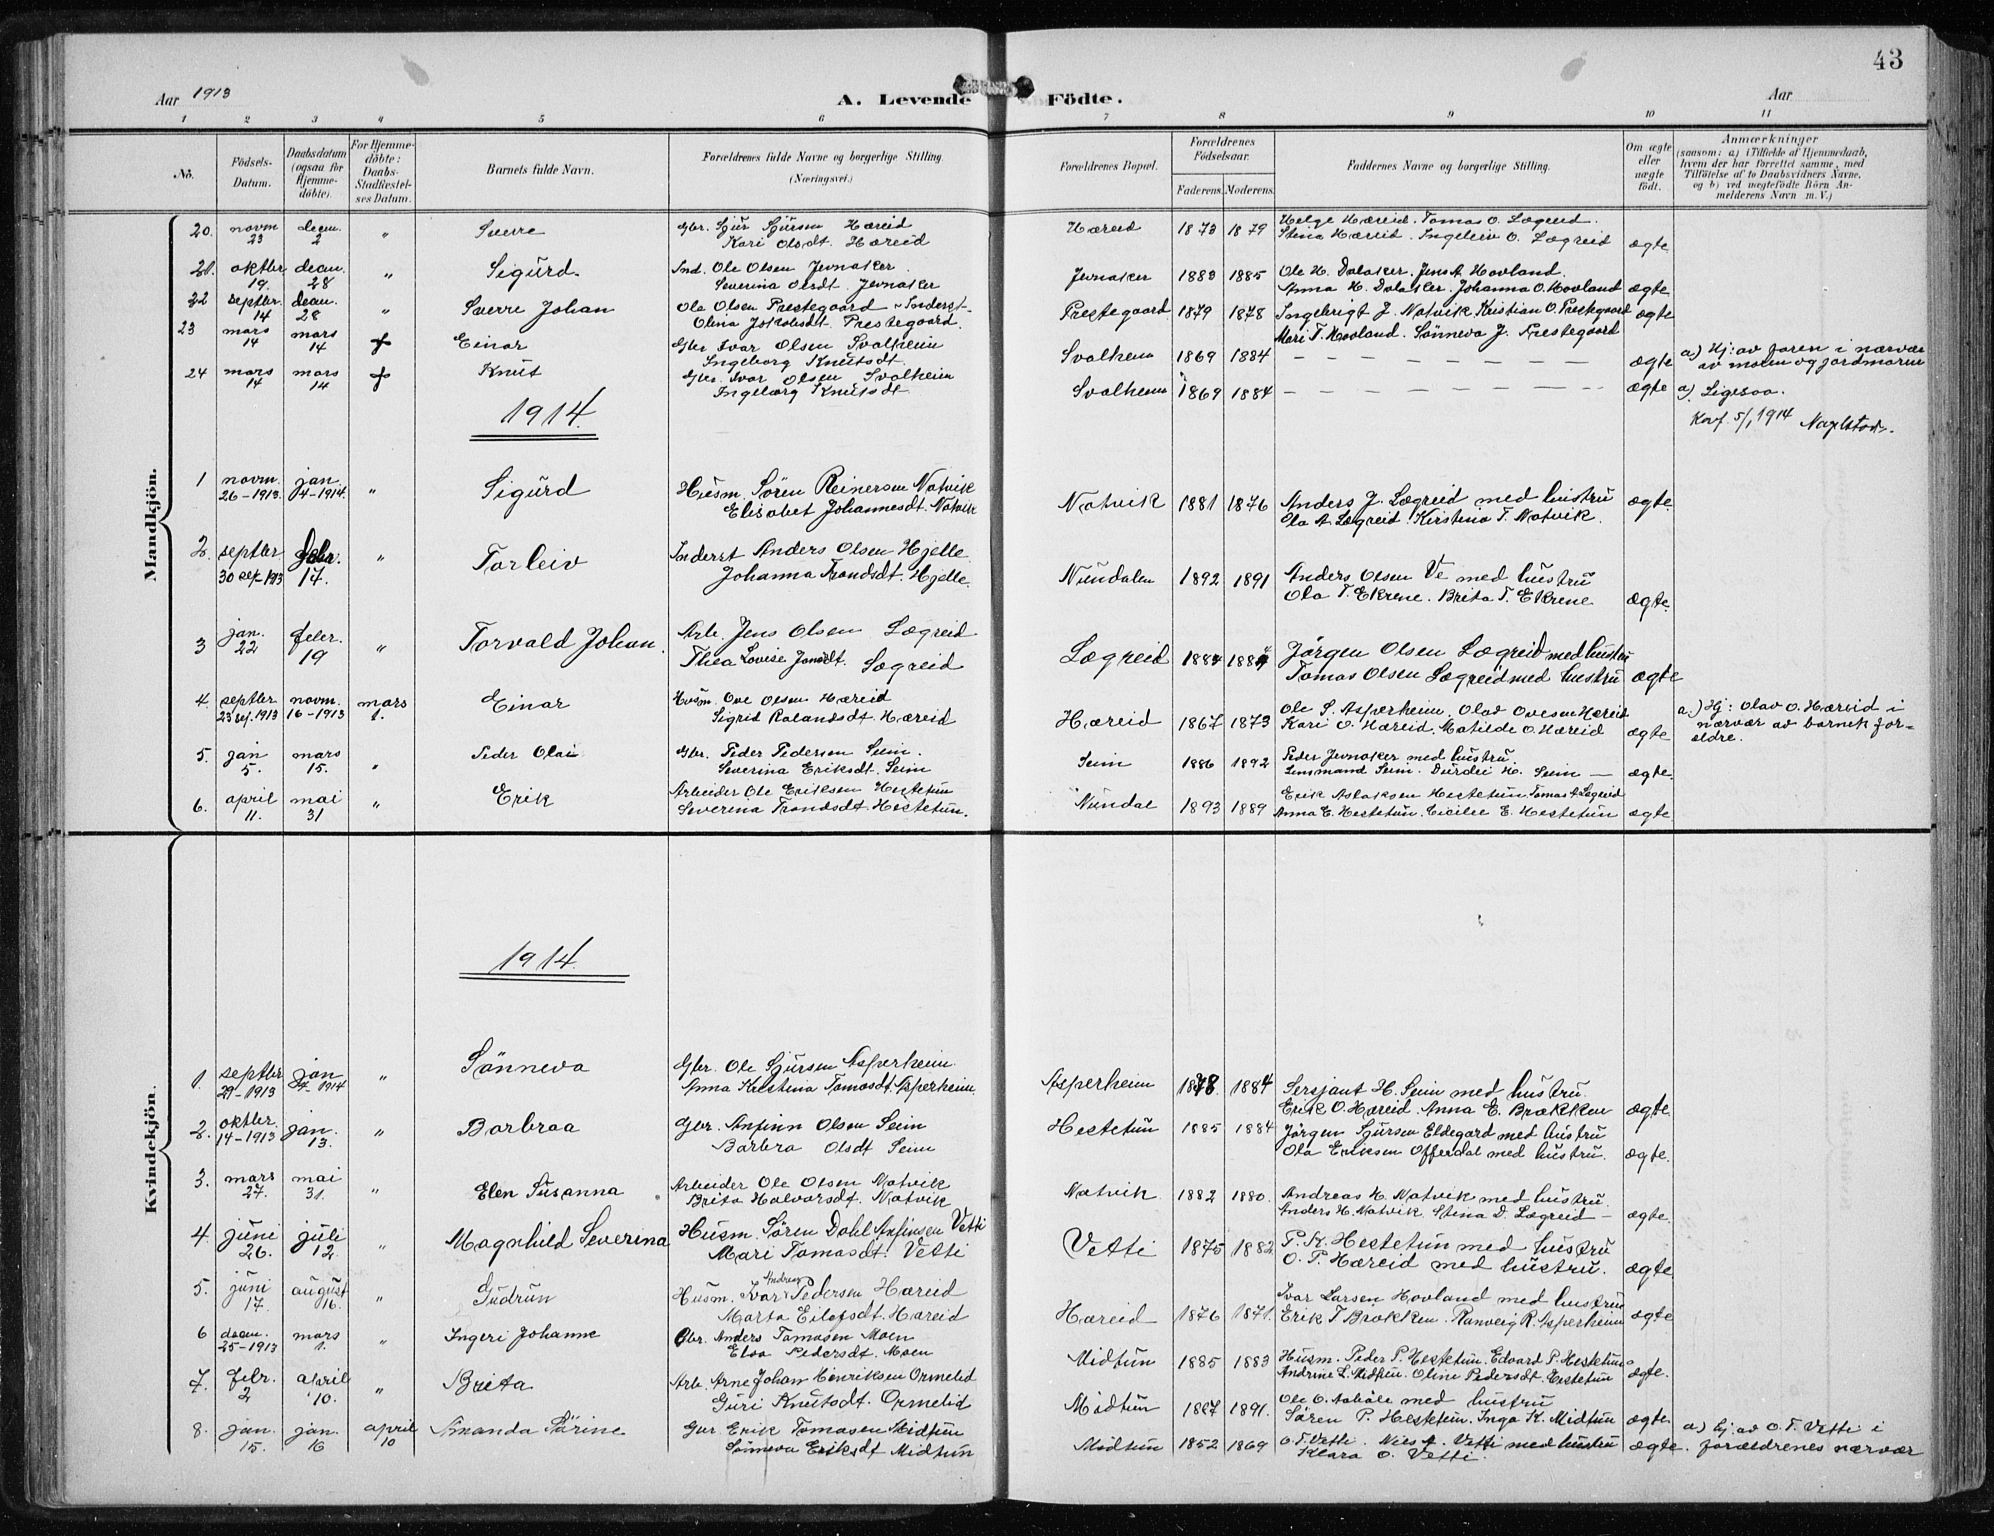 43
Aar 1913
A. Levende Födte.
Aar
1 2 3 4 5 6 7 8 9 10 11
No.
Födsels-Datum.
Daabsdatum (ogsaa for Hjemme-döbte).
For Hjemme-döbte: Daabs-Stadfæstel-ses Datum.
Barnets fulde Navn.
Forældrenes fulde Navne og borgerlige Stilling (Næringsvei.)
Forældrenes Bopæl.
Forældrenes Födselsaar.
Faderens. Moderens.
Faddernes Navne og borgerlige Stilling.
Om ægte eller uægte födt.
Anmærkninger
(saasom: a) i Tilfælde af Hjemmedaab, hvem der har forrettet samme, med Tilföielse af to Daabsvidners Navne, og b) ved uægtefödte Börn An-melderens Navn m. V.)
Mandkjön.
20. novm 23 decm. 2 " Sverre Gbr. Sjur Sjursen Hæreid
Kari Olsdt. Hæreid
Hæreid 1873 1879 Helge Hæreid. Tomas O. Lægreid.
Stina Hæreid. Ingeleiv O. Lægreid ægte
21. oktbr 19. decm. 28 " Sigurd. Ind. Ole Olsen Jevnaker
Severina Olsdt. Jevnaker
Jevnaker 1883 1885 Ole H. Dalaker. Jens A. Hovland.
Anna H. Dalaker. Johanna O. Hovland ægte
22 septbr. 14 decm. 28 " Sverre Johan Ole Olsen Prestegaard - Inderst-
Olina Jakobsdt. Prestegaard.
Prestegaard 1879 1878 Ingebrigt J. Natvik Kristian O. Prestegaard
Mari T. Hovland. Sönneva J. Prestegaard ægte
23 mars 14 mars 14 + Einar Gbr Ivar Olsen Svalheim
Ingeborg Knutsdt.
Svalheim 1869 1884 — — — — — — ægte a) Hj: av faren i nærvær
av moren og jordmoren
24 mars 14 mars 14 + Knut Gbr. Ivar Olsen Svalheim
Ingeborg Knutsdt
Svalheim 1869 1884 — — — — — — ægte a). Ligesaa.
1914
Konf. 5/1 1914
1 novm. 26-1913. jan. 4-1914. " Sigurd Husm. Sören Reinersen Natvik
Elisabet Johannesdt. Natvik
Natvik 1881 1876 Anders J. Lægreid med hustru
Ola A. Lægreid. Kirstina T. Natvik. ægte.
2. septbr 30 sep-1913 febr. 14. " Torleiv Inderst Anders Olsen Hjelle
Johanna Trondsdt. Hjelle.
Nundalen 1892 1891 Anders Olsen Ve med hustru
Ola T. Ekrene. Brita T. Ekrene ægte.
3 jan. 22 febr. 19 " Torvald Johan. Arb. Jens Olsen Lægreid
Thea Lovise Jonsdt. Lægreid
Lægreid Jörgen Olsen Lægreid med hustru
Tomas Olsen Lægreid med hustru ægte
4. septbr 23 sep. 1913 novm. 16-1913 mars 1. Einar Husm. Ove Olsen Hæreid
Sigrid Rolandsdt. Hæreid
Hæreid 1867 1873 Ole S. Asperheim. Olav Ovesen Hæreid
Kari O. Hæreid. Matilde O. Hæreid ægte a.) Hj: Olav O. Hæreid i
nærvær av barnets for-
ældre.
5. jan 5. mars 15. " Peder Olai Gbr. Peder Pedersen Seim.
Severina Eriksdt. Seim
Seim 1886 1892 Peder Jevnaker med hustru.
Lensmand Seim. Durdei H. Seim — ægte.
6. april 11. mai 31 " Erik Arbeider Ole Eriksen Hestetun
Severina Trondsdt Hestetun.
Nundal 1893 1889 Erik Aslaksen Hestetun. Tomas A. Lægreid
Anna E. Hestetun. Cicilie E. Hestetun ægte.
Kvindekjön.
1914
1. septbr 29-1913 jan 4-1914 " Sönneva Gbr. Ole Sjursen Asperheim
Anna Kristina Tomasdt. Asperheim.
Asperheim 1878 1884 Sersjant H. Seim med hustru.
Erik O. Hæreid. Anna E. Brækken ægte.
2. oktbr. 14-1913 jan. 13. " Barbraa Gbr. Anfinn Olsen Seim
Barbra Olsdt Seim
Hestetun 1885 1884 Jörgen Sjursen Eldegard med hustru
Ola Eriksen Offerdal med hustru. ægte.
3. mars 27. mai 31. " Elen Susanna Arbeider Ole Olsen Natvik
Brita Halvorsdt. Natvik
Natvik 1882 1880. Andreas H. Natvik med hustru.
Anders H. Natvik Stina D. Lægreid — ægte.
4. juni 26. juli 12. " Magnhild Severina Husm. Sören Dahl Anfinsen Vetti
Mari Tomasdt. Vetti
Vetti 1875 1882 P. K. Hestetun med hustru
O. P. Hæreid med hustru. ægte
5. juni 17. august 16. " Gudrun Husm. Ivar Andreas Pedersen Hæreid
Marta Eilefsdt. Hæreid
Hæreid 1876 1871. Ivar Larsen Hovland med hustru
Erik T. Brækken. Ranveig R. Asperheim ægte
6 decm. 25-1913 mars 1. " Ingeri Johanne Gbr. Anders Tomasen Moen
Elsa Pedersdt. Moen
Midtun 1885 1883 Husm. Peder P. Hestetun. Edvard P. Hestetun.
Andrine L. Midtun. Oline Pedersdt. Hestetun ægte.
7. febr. 2 april 10. " Brita Arb. Arne Johan Henriksen Ormelid
Guri Knutsdt. Ormelid
Midtun 1891. Ole O. Aabøle med hustru
Sören P. Hestetun. Inga K. Midtun ægte.
8. jan. 15. jan. 16 april 10 Amanda Sörine Gbr Erik Tomasen Midtun
Sönneva Eriksdt Midtun
Midtun 1852 1869 O. T. Vetti. Niels A. Vetti med hustru
Klara O. Vetti. ægte. a) hj: av O. T. Vetti i
forældrenes nærvær